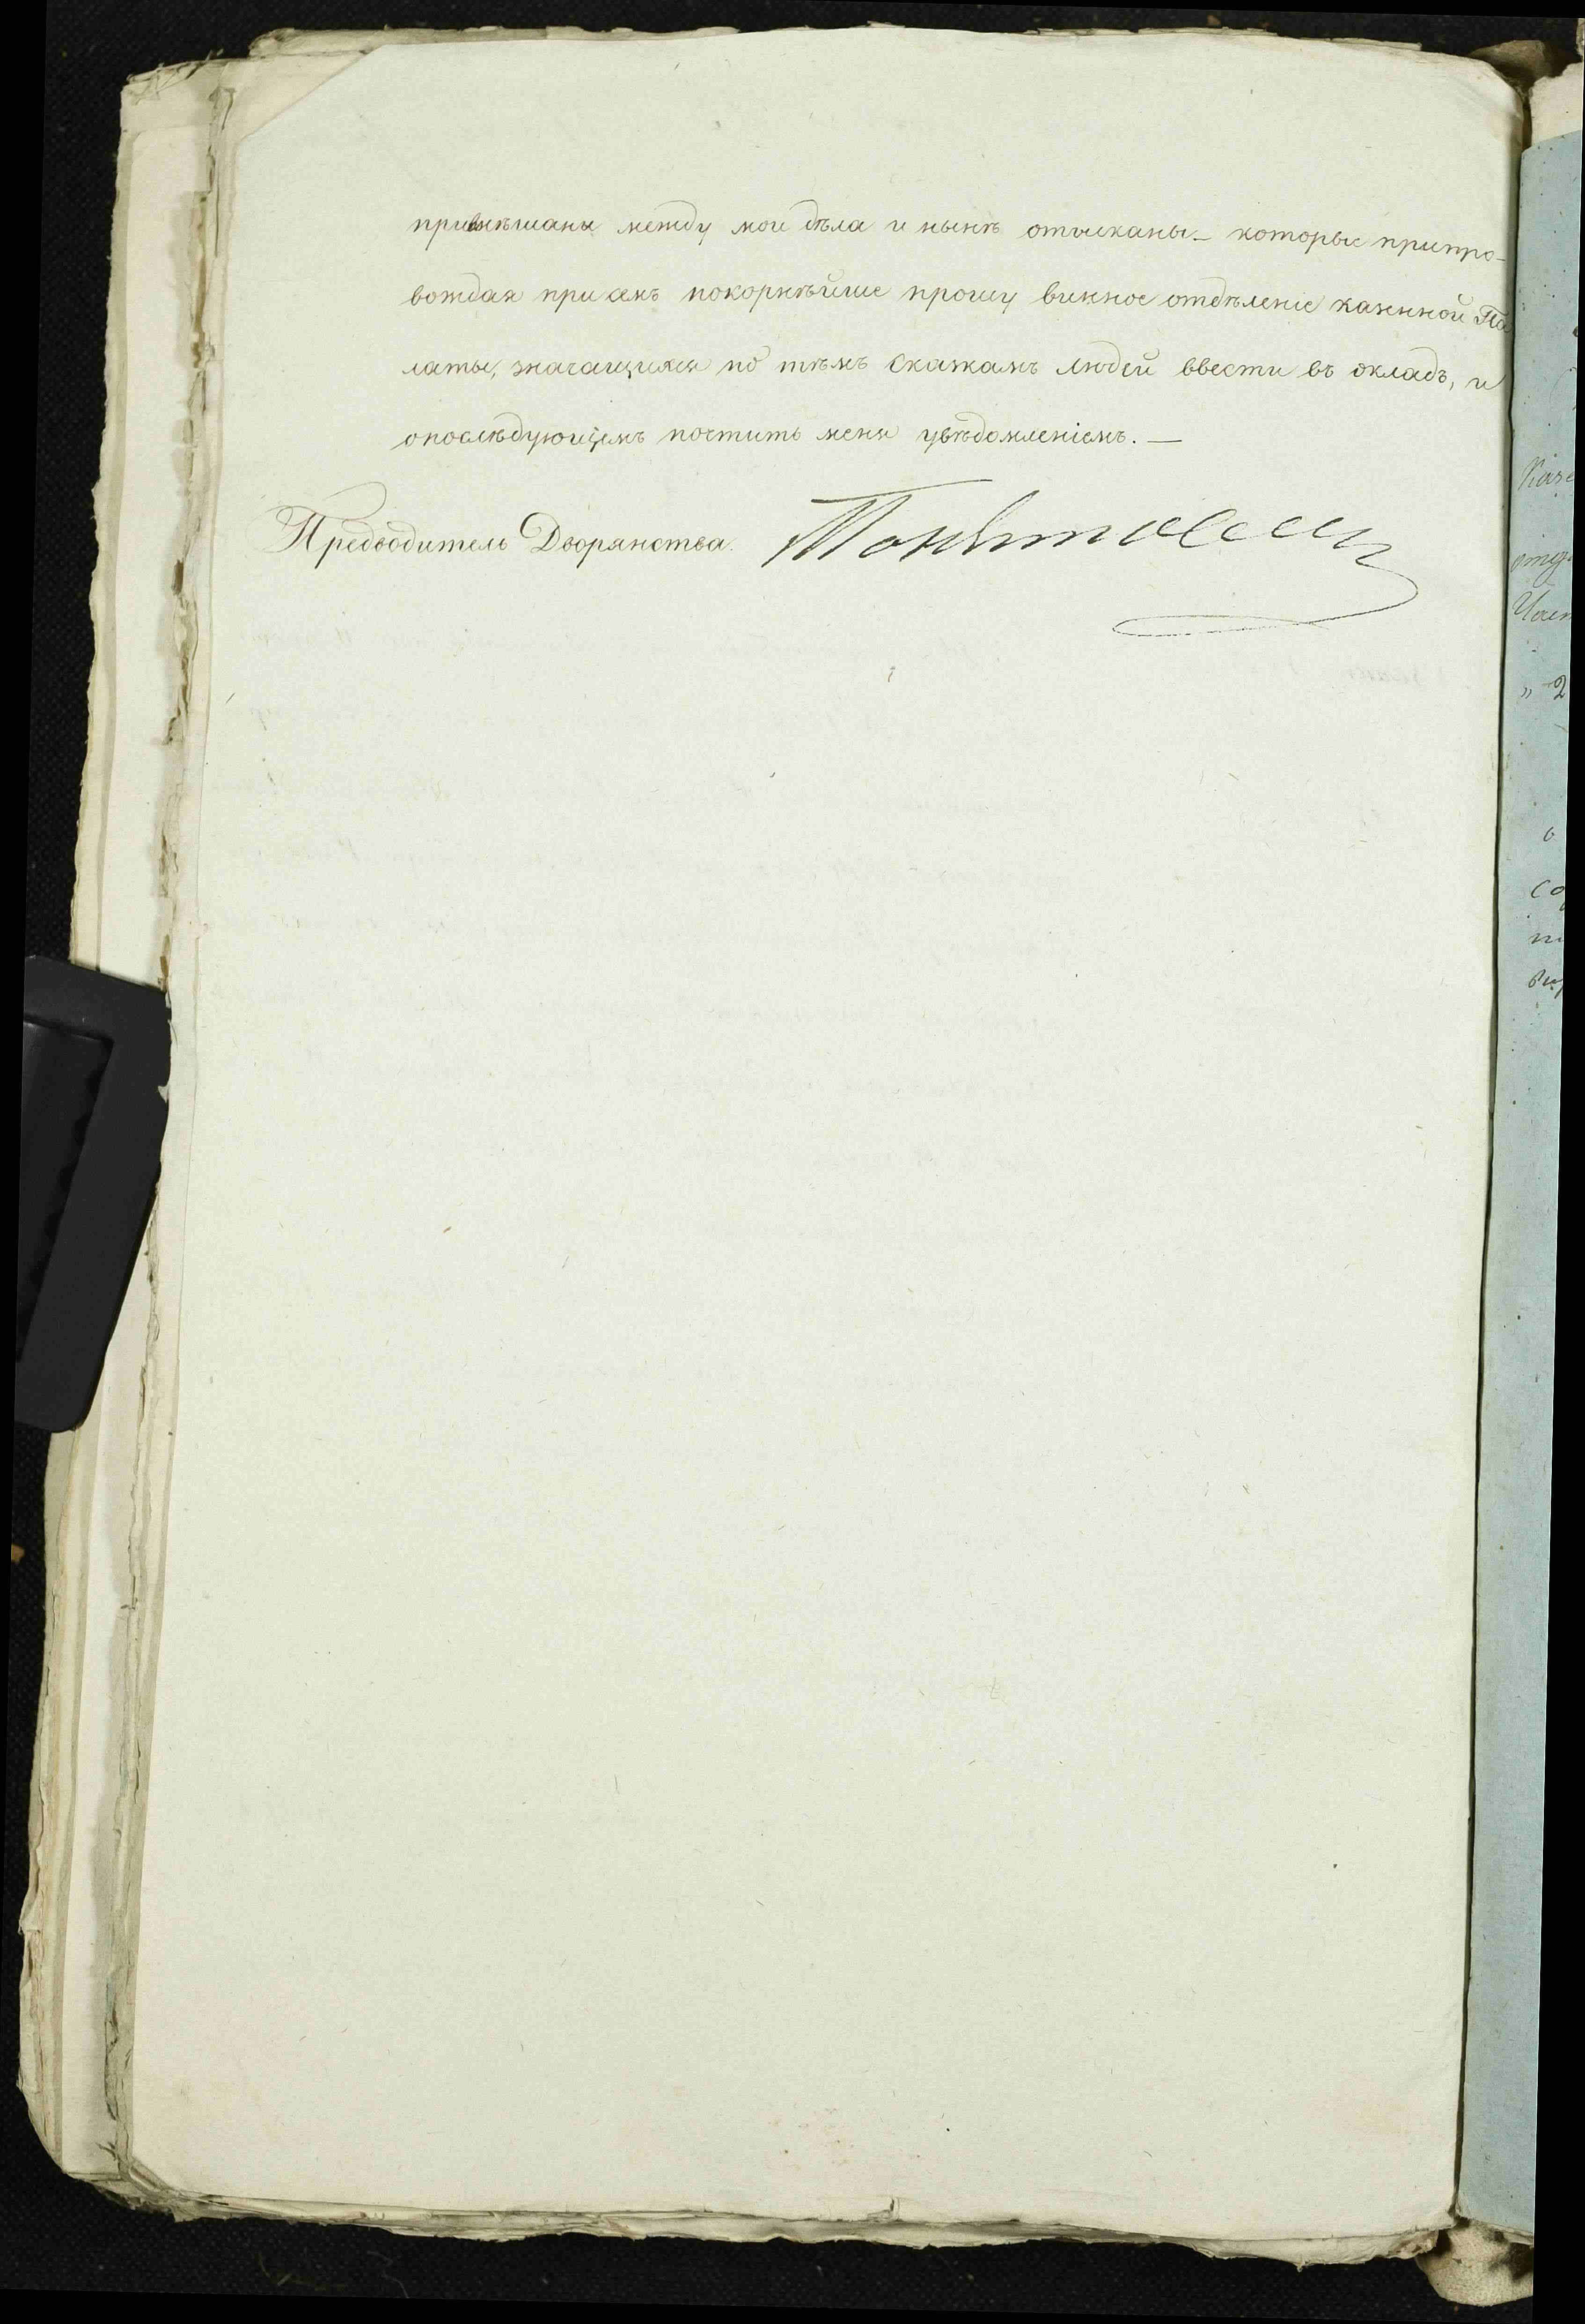 примѣшаны между мои дѣла и нынѣ отысканы — которые препро-
вождая при семъ покорнѣйше прошу винное отдѣленіе казенной Па
латы, значащихся по тѣмъ скаскамъ людей ввести въ окладъ, и
опослѣдующемъ почтить меня увѣдомленіемъ. —
Предводитель Дворянства.